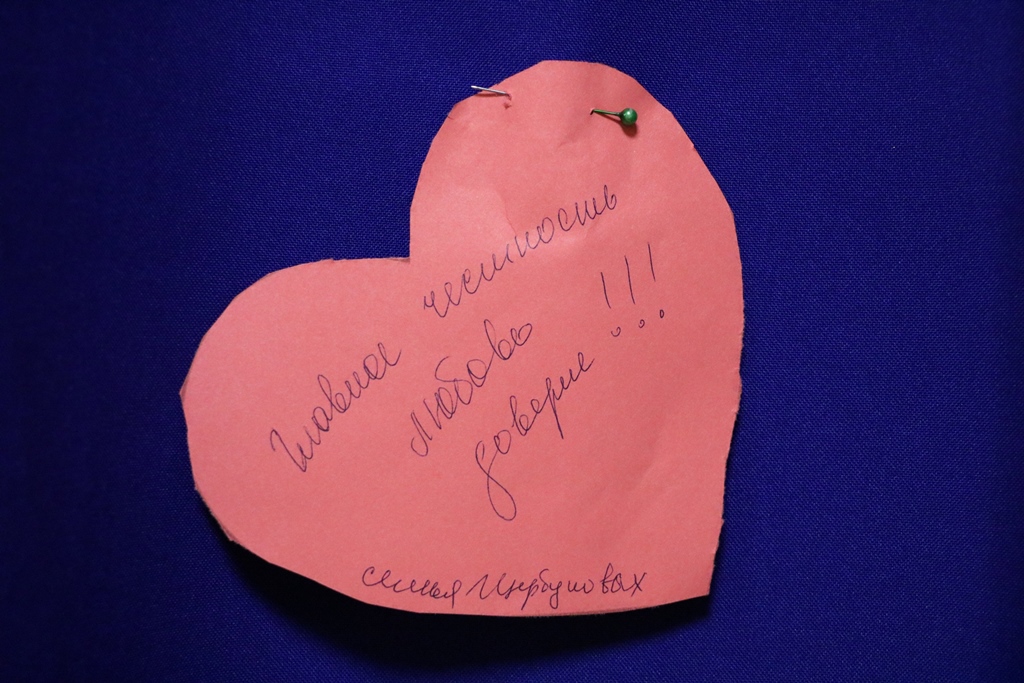 Главное честность
любовь
доверие !!!
семья